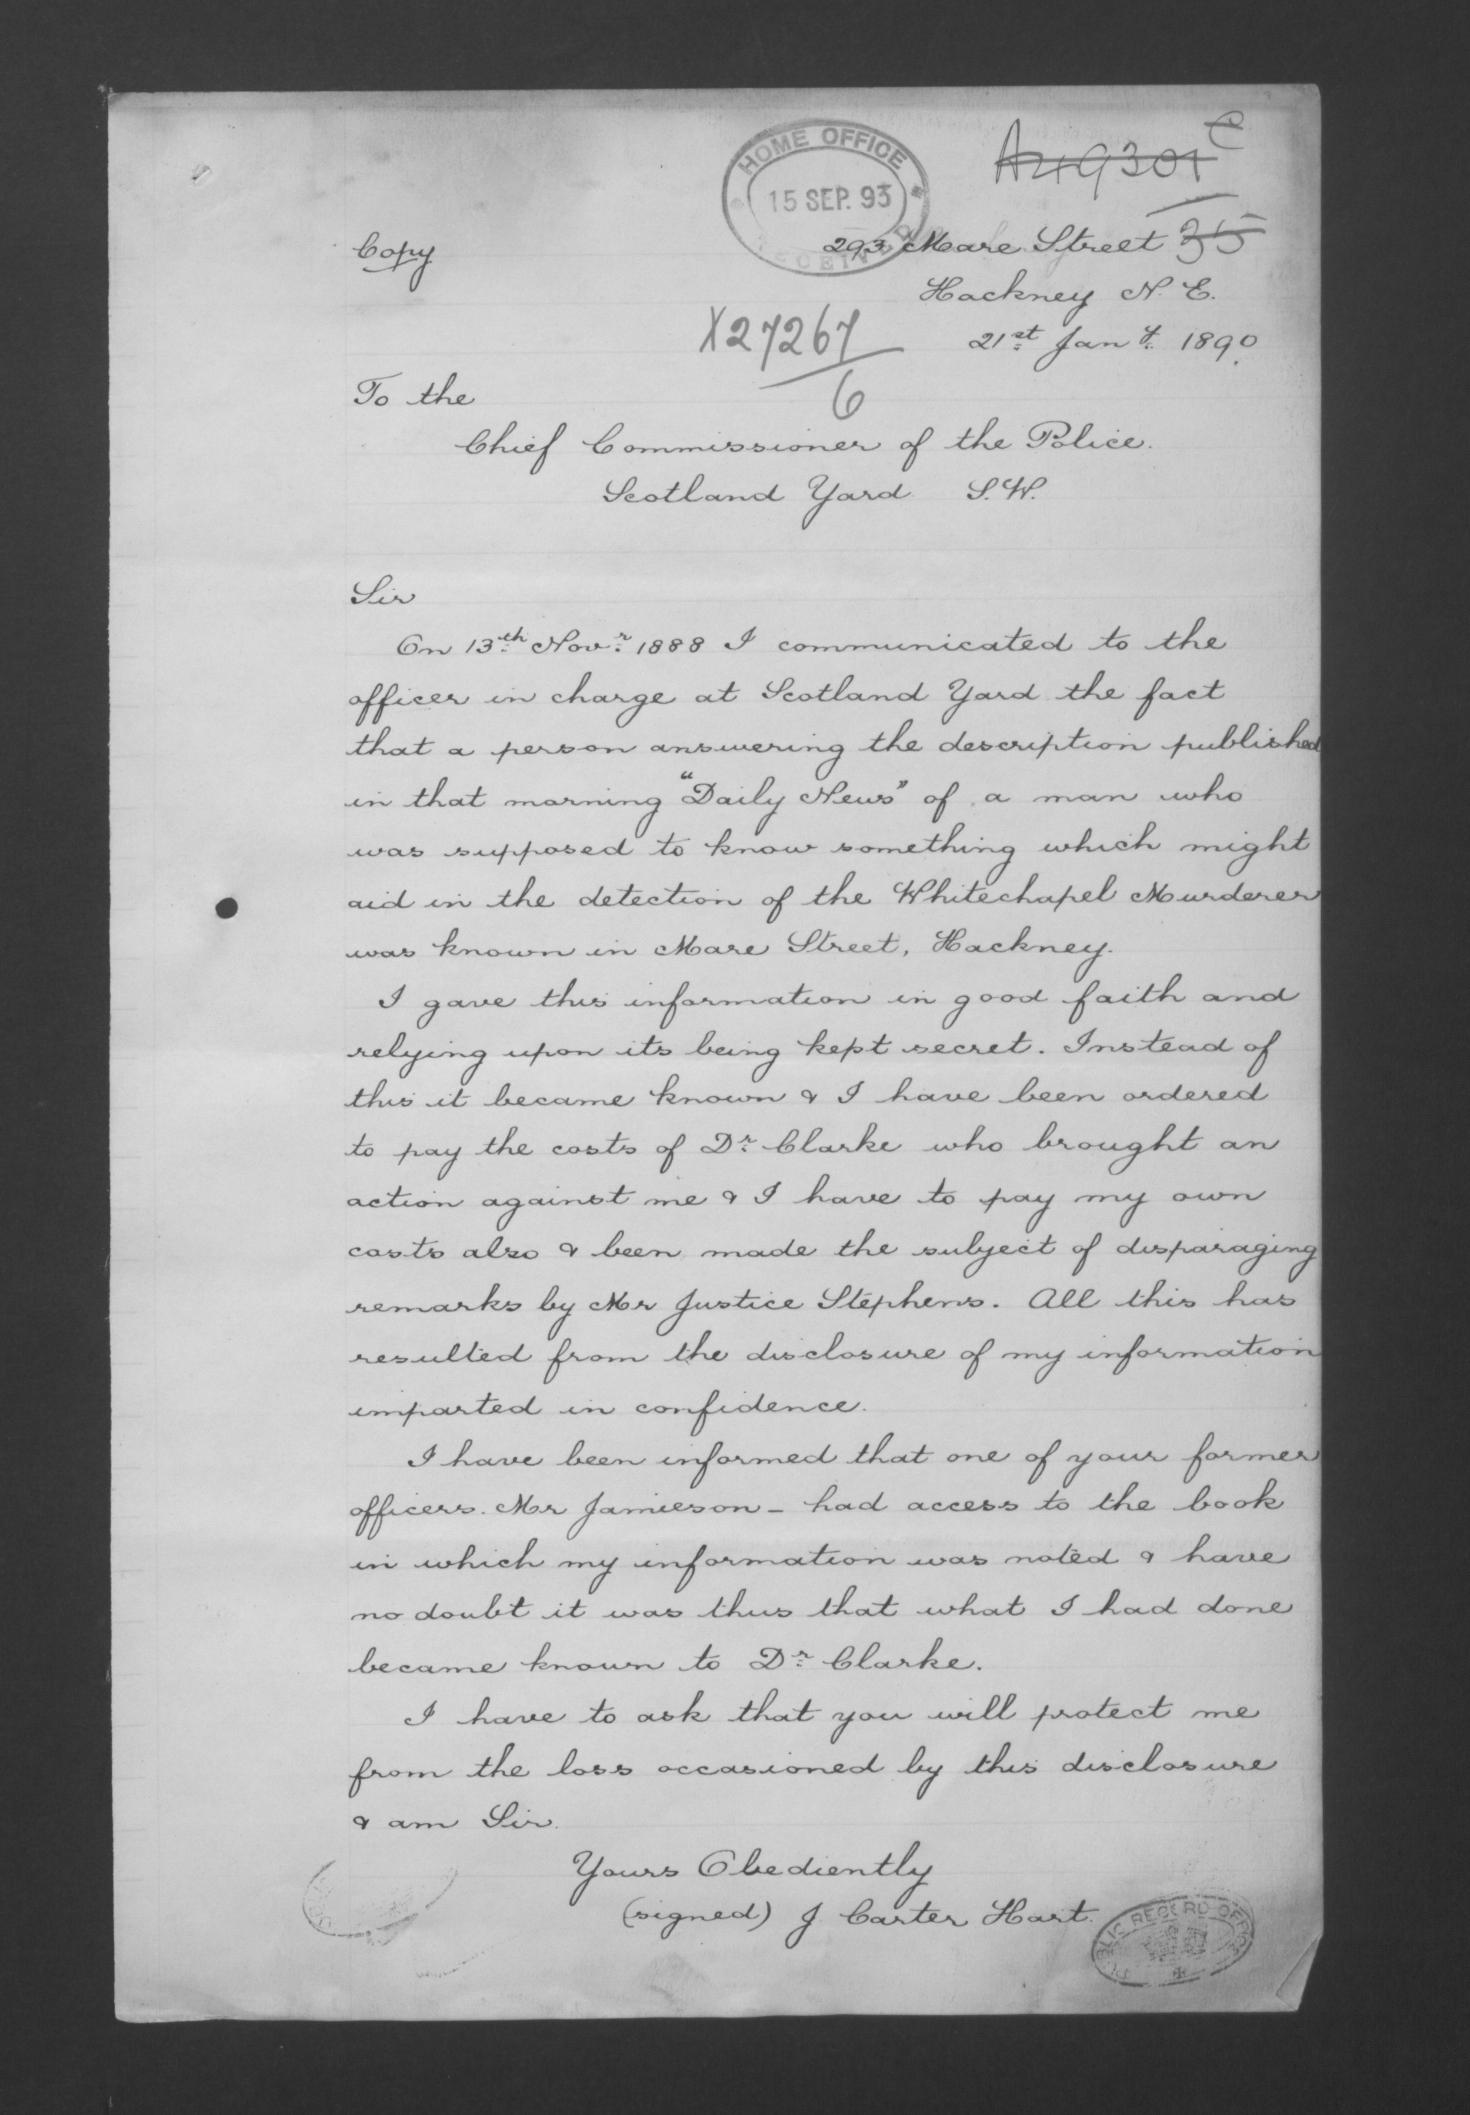 HOME OFFICE
15 SEP. 93
RECEIVED
A49301 C
35
Copy
293 Mare Street
Hackney N. E.
X27267
6
21st Jany. 1890.
To the
Chief Commissioner of the Police.
Scotland Yard S.W.
Sir
On 13th Novr. 1888 I communicated to the
officer in charge at Scotland Yard the fact
that a person answering the description published
in that morning "Daily News" of a man who
was supposed to know something which might
aid in the detection of the Whitechapel Murderer
was known in Mare Street, Hackney.
I gave this information in good faith and
relying upon its being kept secret. Instead of
this it became known & I have been ordered
to pay the costs of Dr. Clarke who brought an
action against me & I have to pay my own
costs also & been made the subject of disparaging
remarks by Mr Justice Stephens. All this has
resulted from the disclosure of my information
imparted in confidence.
I have been informed that one of your former
officers. Mr Jamieson - had access to the book
in which my information was noted & have
no doubt it was thus that what I had done
became known to Dr. Clarke.
I have to ask that you will protect me
from the loss occasioned by this disclosure
& am Sir.
Yours Obediently
(signed) J Carter Hart.
PUBLIC RECORD OFFICE